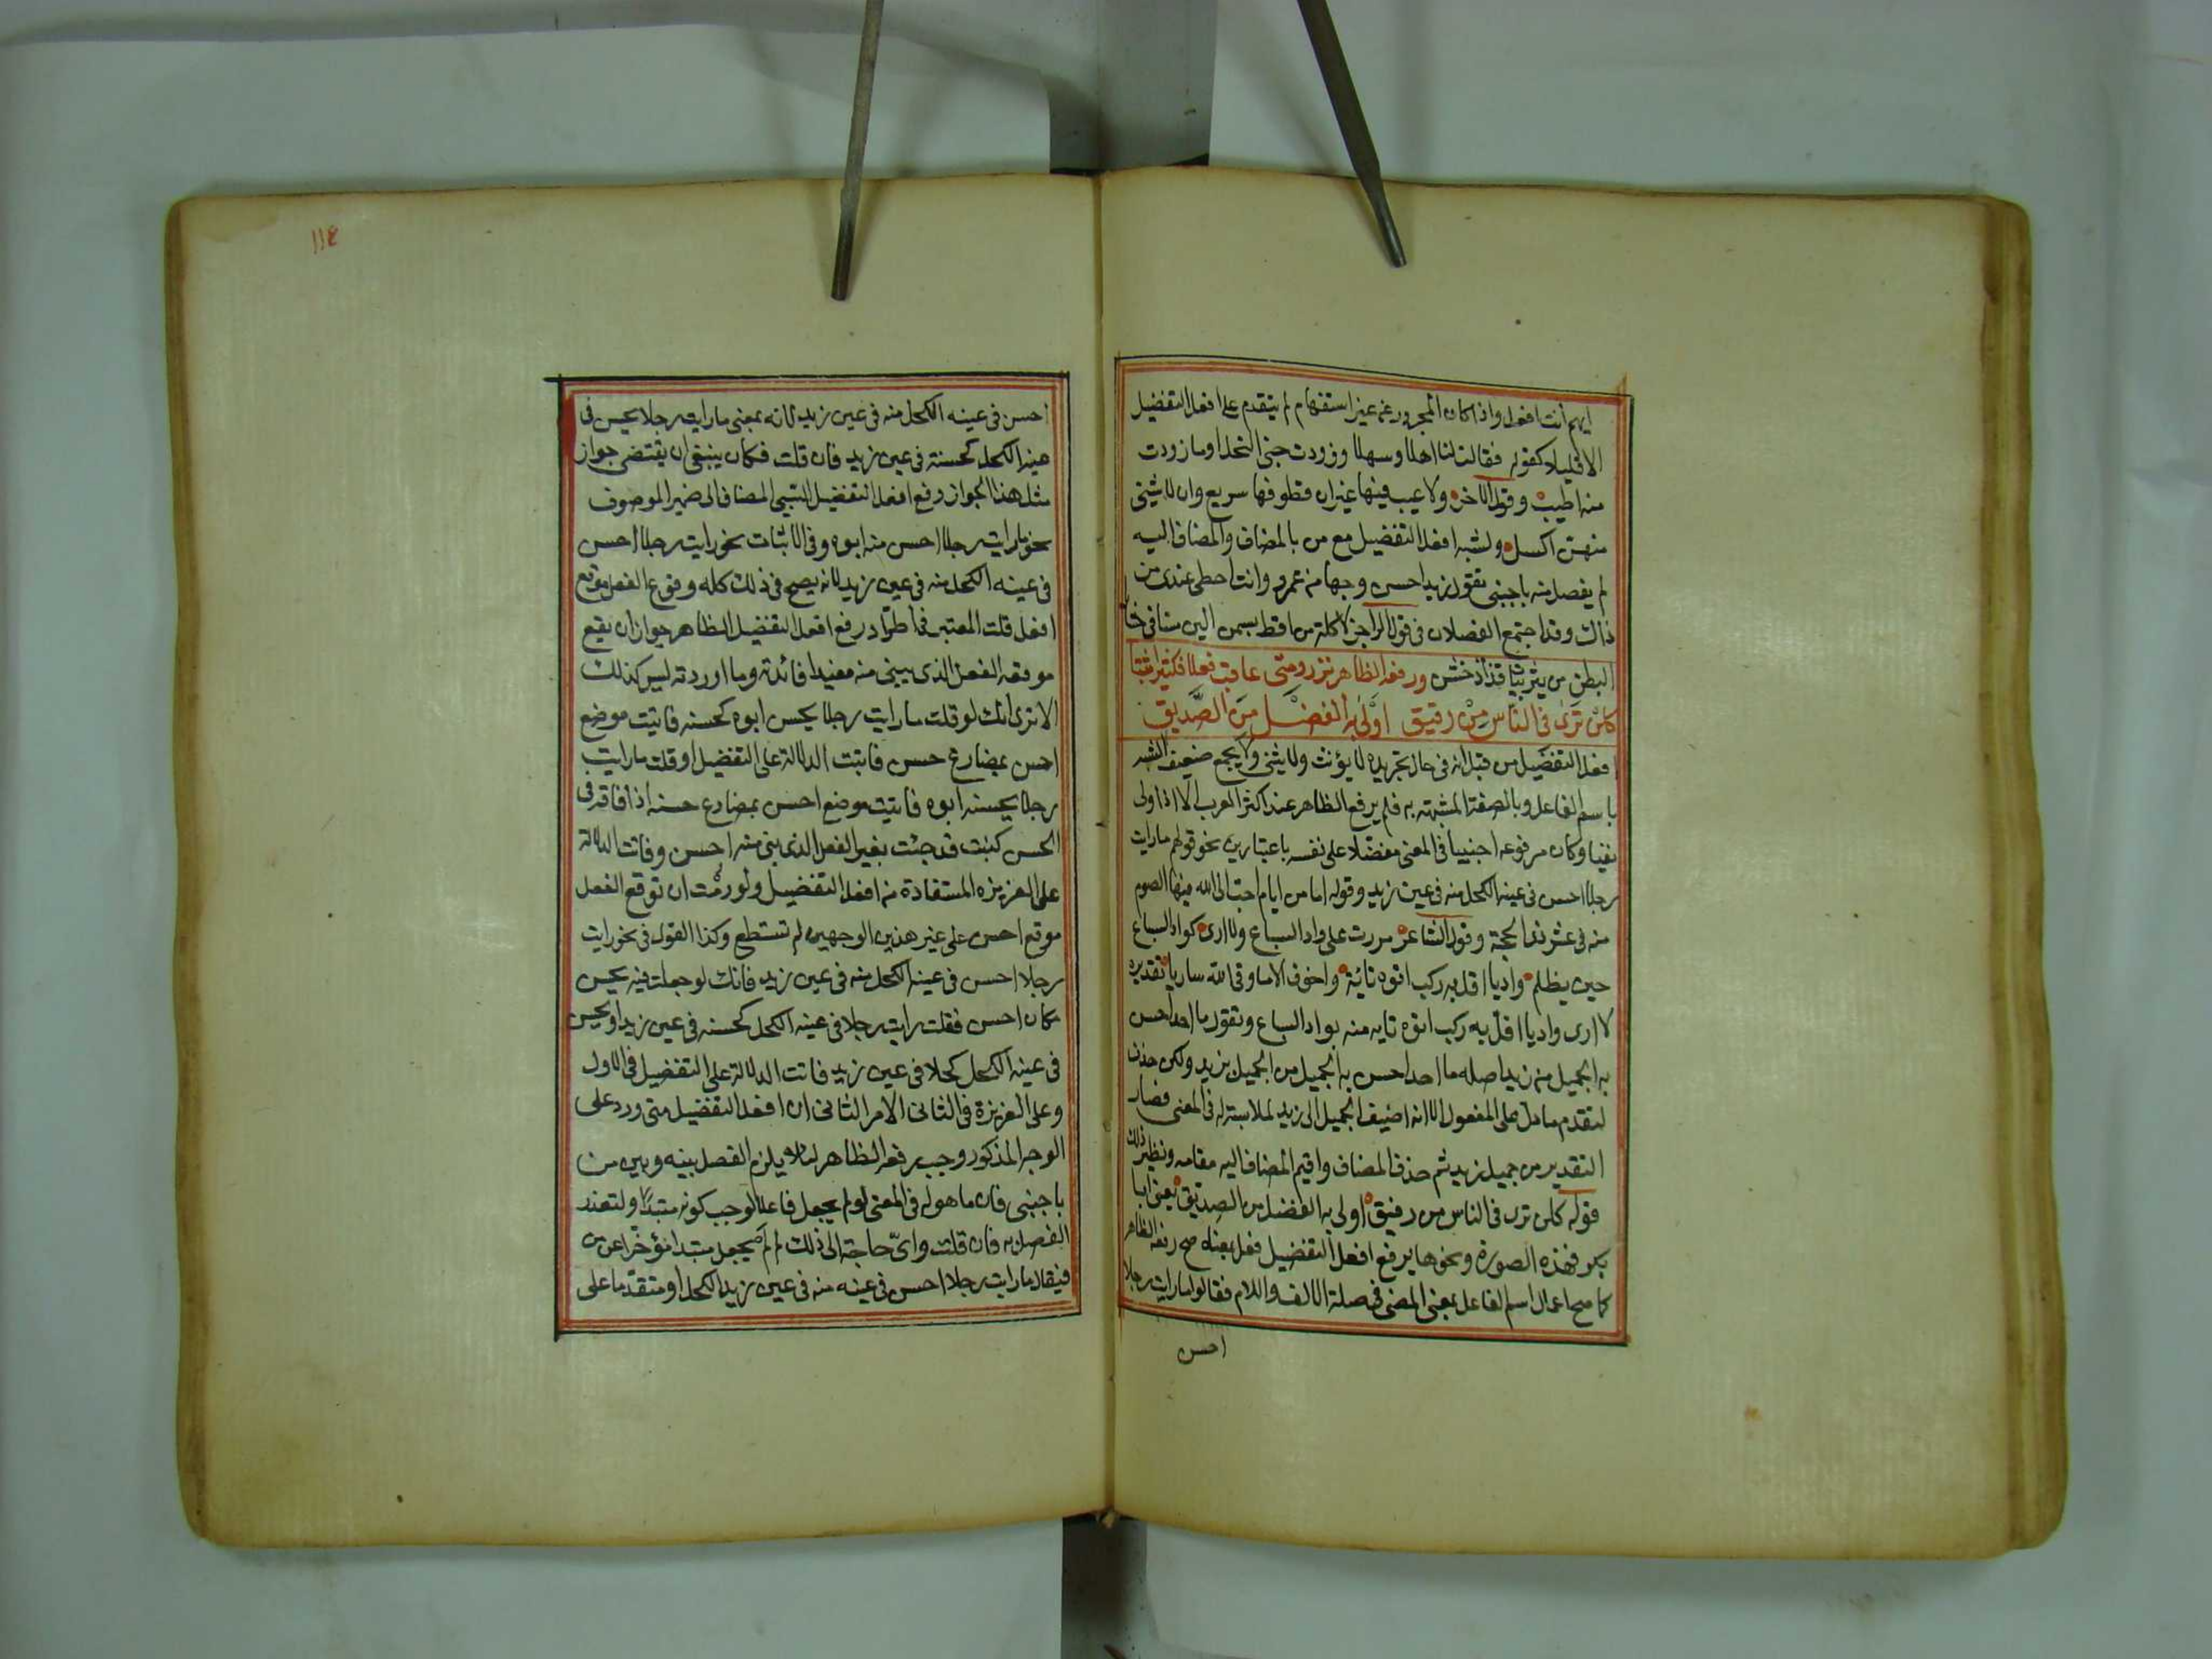 ايهم أنت افضل واذا كان المجرور غير استفهام لم يتقدم على افعل التفضيل
الا قليلا كقوله فقالت لنا اهلا وسهلا وزودت جنى النحل او ما زودت
منه اطيب وقول الاخر ولا عيب فيها غير ان قطوفها سريع وان لا شيئ
منهن اكسل ولشبه افعل التفضيل مع من بالمضاف والمضاف اليه
لم يفصل منه باجنبي تقول زيد احسن وجها من عمرو وانت احظى عندى من
ذاك وقد اجتمع الفصلان فى قول الراجز لاكلة من اقط بسمن الين مسا فى حشايا
البطن من يثربيات قذاذ خشن ورفعه الظاهر نزر ومتى عاقب فعلا فكثيرا ثبتا
كلن ترى فى الناس من رفيق اولى به الفضل من الصديق
افعل التفضيل من قبل انه فى حال تجريده لا يؤنث ولا يثنى ولا يجمع ضعيف الشبه
باسم الفاعل وبالصفة المشبهة به فلم يرفع الظاهر عند اكثر العرب الا اذا ولى
نفيا وكان مرفوعه اجنبيا فى المعنى مفضلا على نفسه باعتبارين نحو قولهم ما رايت
رجلا احسن فى عينه الكحل منه فى عين زيد وقوله ما من ايام احب الى الله فيها الصوم
منه فى عشر ذى الحجة وقول الشاعر مررت على واد السباع ولا ارى كواد السباع
حين يظلم واديا اقل به ركب اتوه تائية واخوف الا ما وقى الله ساريا تقديره
لا ارى واديا اقل به ركب اتوه تايه منه بواد السباع وتقول ما احد احسن
به الجميل من زيد اصله ما احد احسن به الجميل من الجميل بزيد ولكن حذف
لتقدم ما دل على المفعول الا انه اضيف الجميل الى زيد لملابسته له فى المعنى فصار
التقدير من جميل زيد ثم حذف المضاف واقيم المضاف اليه مقامه ونظير ذلك
قوله كلن ترى فى الناس من رفيق اولى به الفضل من الصديق يعنى ابا
بكر فهذه الصورة ونحوها يرفع افعل التفضيل فعل بمعناه صح رفعه الظاهر
كما صح اعمال اسم الفاعل بمعنى المضى فى صلة الالف واللام فقالوا ما رايت رجلا
احسن
احسن فى عينه الكحل منه فى عين زيد لانه بمعنى ما رايت رجلا يحسن فى
عينه الكحل كحسنه فى عين زيد فان قلت فكان ينبغى ان يقتضى جواز
مثل هذا الجواز رفع افعل التفضيل السببى المضاف الى ضمير الموصوف
نحو ما رايت رجلا احسن منه ابوه وفى الاثبات نحو رايت رجلا احسن
فى عينه الكحل منه فى عين زيد لانه يصح فى ذلك كله وقوع الفعل موقع
افعل قلت المعتبر فى اطراد رفع افعل التفضيل الظاهر جواز ان يقع
موقعه الفعل الذى يبنى منه مفيدا فائدته وما اوردته ليس كذلك
الا ترى انك لو قلت ما رايت رجلا يحسن ابوه كحسنه فاتيت موضع
احسن بمضارع حسن فاتت الدلالة على التفضيل او قلت ما رايت
رجلا يحسنه ابوه فاتيت موضع احسن بمضارع حسنه اذا فاقه فى
الحسن كنت قد جئت بغير الفعل الذى يبنى منه احسن وفاتت الدلالة
على الغريزه المستفادة من افعل التفضيل ولو رمت ان توقع الفعل
موقع احسن على غير هذين الوجهين لم تستطع وكذا القول فى نحو رايت
رجلا احسن فى عينه الكحل منه فى عين زيد فانك لو جعلت فيه يحسن
مكان احسن فقلت رايت رجلا فى عينه الكحل كحسنه فى عين زيد او يحسن
فى عينه الكحل كحلا فى عين زيد فاتت الدلالة على التفضيل فى الاول
وعلى الغريزة فى الثانى الامر الثانى ان افعل التفضيل متى ورد على
الوجه المذكور وجب رفعه الظاهر لئلا يلزم الفصل بينه وبين من
باجنبى فان ما هو له فى المعنى لو لم يجعل فاعلا لوجب كونه مبتدأ ولتعذر
الفصل به فان قلت واى حاجة الى ذلك لم لم يجعل مبتدا مؤخرا عن من
فيقال ما رايت رجلا احسن فى عينه منه فى عين زيد الكحل او متقدما على